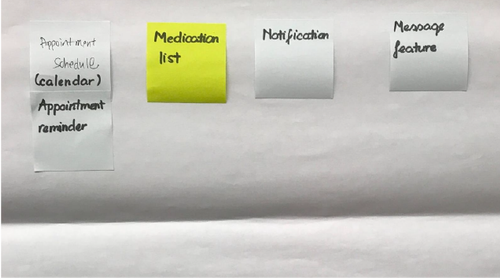 Appointment
Schedule
(calendar)
Appointment
reminder
Medication
list
Notification
Message
feature